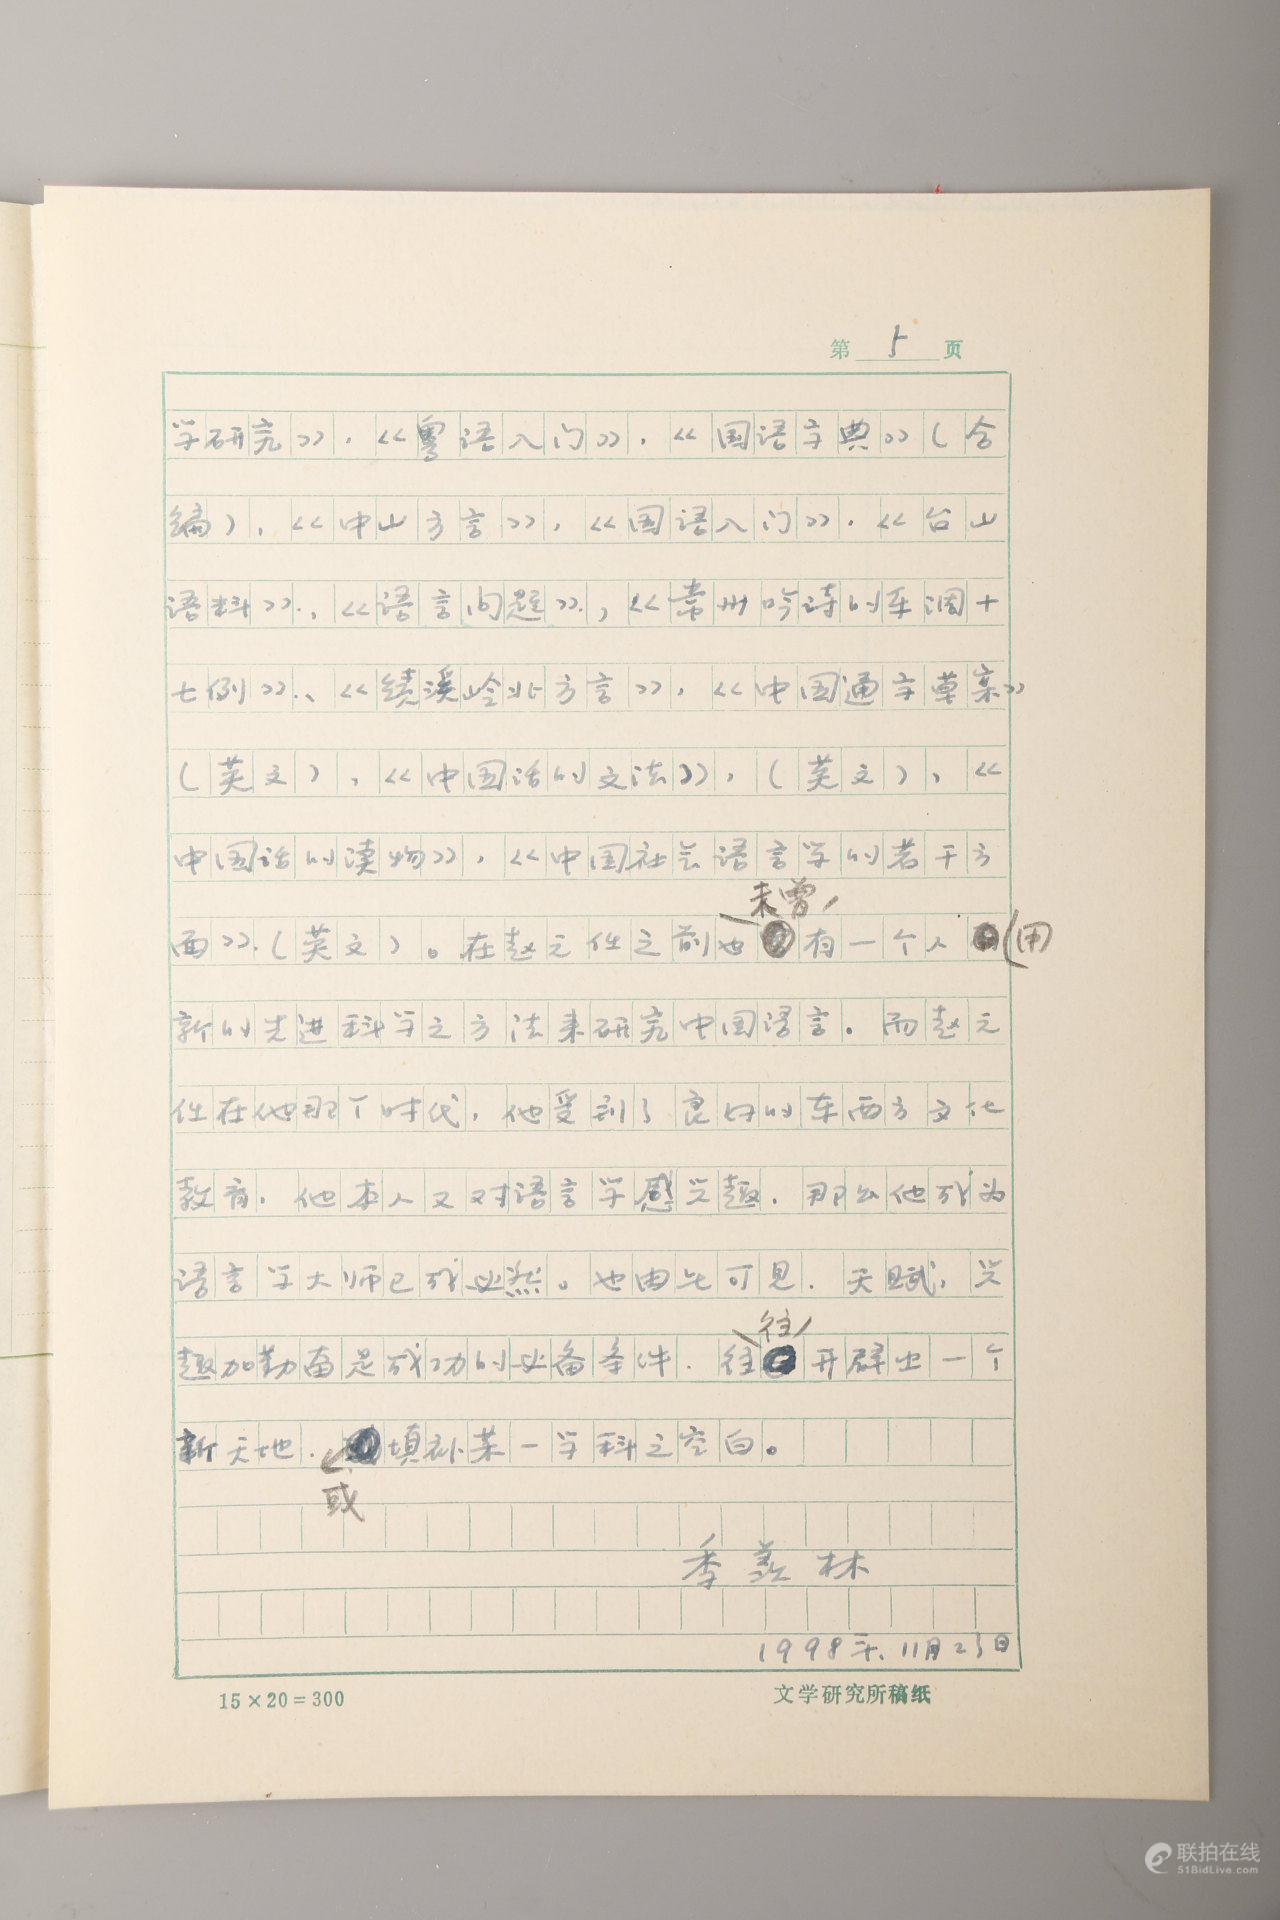 第5页
学研究》，《粤语入门》，《国语字典》（合
编），《中山方言》，《国语入门》，《台山
语料》、《语言问题》，《常州吟诗的乐调十
七例》、《绩溪岭北方言》，《中国通字草案》
（英文），《中国话的文法》，（英文），《
中国话的读物》，《中国社会语言学的若干方
未曾
面》（英文）。在赵元任之前也有一个人用
新的先进科学之方法来研究中国语言。而赵元
任在他那个时代，他受到了良好的东西方文化
教育，他本人又对语言学感兴趣，那么他成为
语言学大师已成必然。也由此可见，天赋，兴
往
趣加勤奋是成功的必备条件，往开辟出一个
新天地，填补某一学科之空白。
或
季羡林
1998年、11月23日
15×20=300
文学研究所稿纸
联拍在线
51BidLive.com